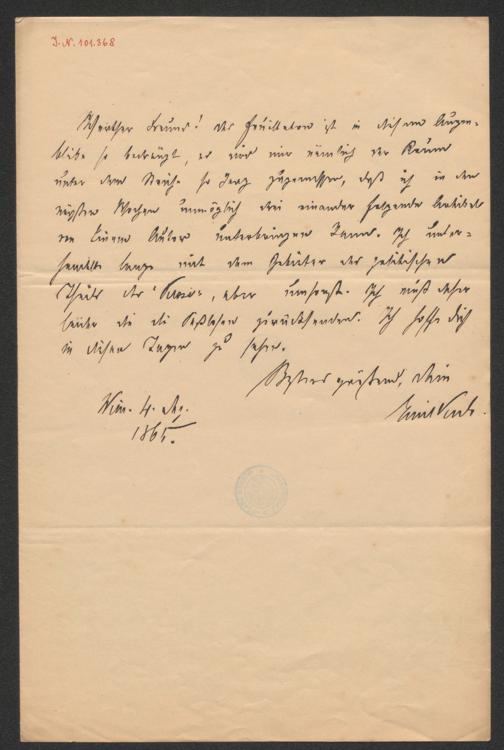 J.N. 101.368
Werther Freund! Das Feuilleton ist in diesem Augen-
blicke so bedrängt, es wird mir nämlich der Raum
unter dem Striche so karg zugemessen, daß ich in den
nächsten Wochen unmöglich drei einander folgende Artikel
von Einem Autor unterbringen kann. Ich unter-
handelte lange mit dem Gebieter des politischen
Theils der "Presse", aber umsonst. Ich muß daher
leider die zurücksenden. Ich hoffe Dich
in diesen Tagen zu sehen.
Bestens grüßend, Dein
Wien. 4. Dez.
1865.